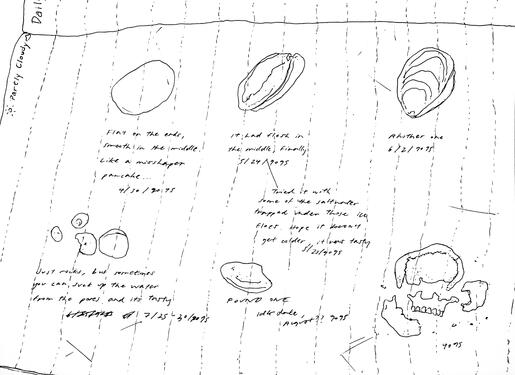 Dail
Partly Cloudy
Flat on the ends,
smooth in the middle.
Like a misshapen
pancake...
4/30/9095
it had flesh in
the middle, Finally
5/24/9095
Another one
6/2/9095
Tried it with
some of the saltwater
trapped under those ice
floes. Hope it doesn't
get colder, it was tasty
5/25/9095
Just rocks, but sometimes
you can suck up the water
from the pores and its tasty
7/25 - 30/9095
FOUND ONE
idk date,
August?? 9095
9095